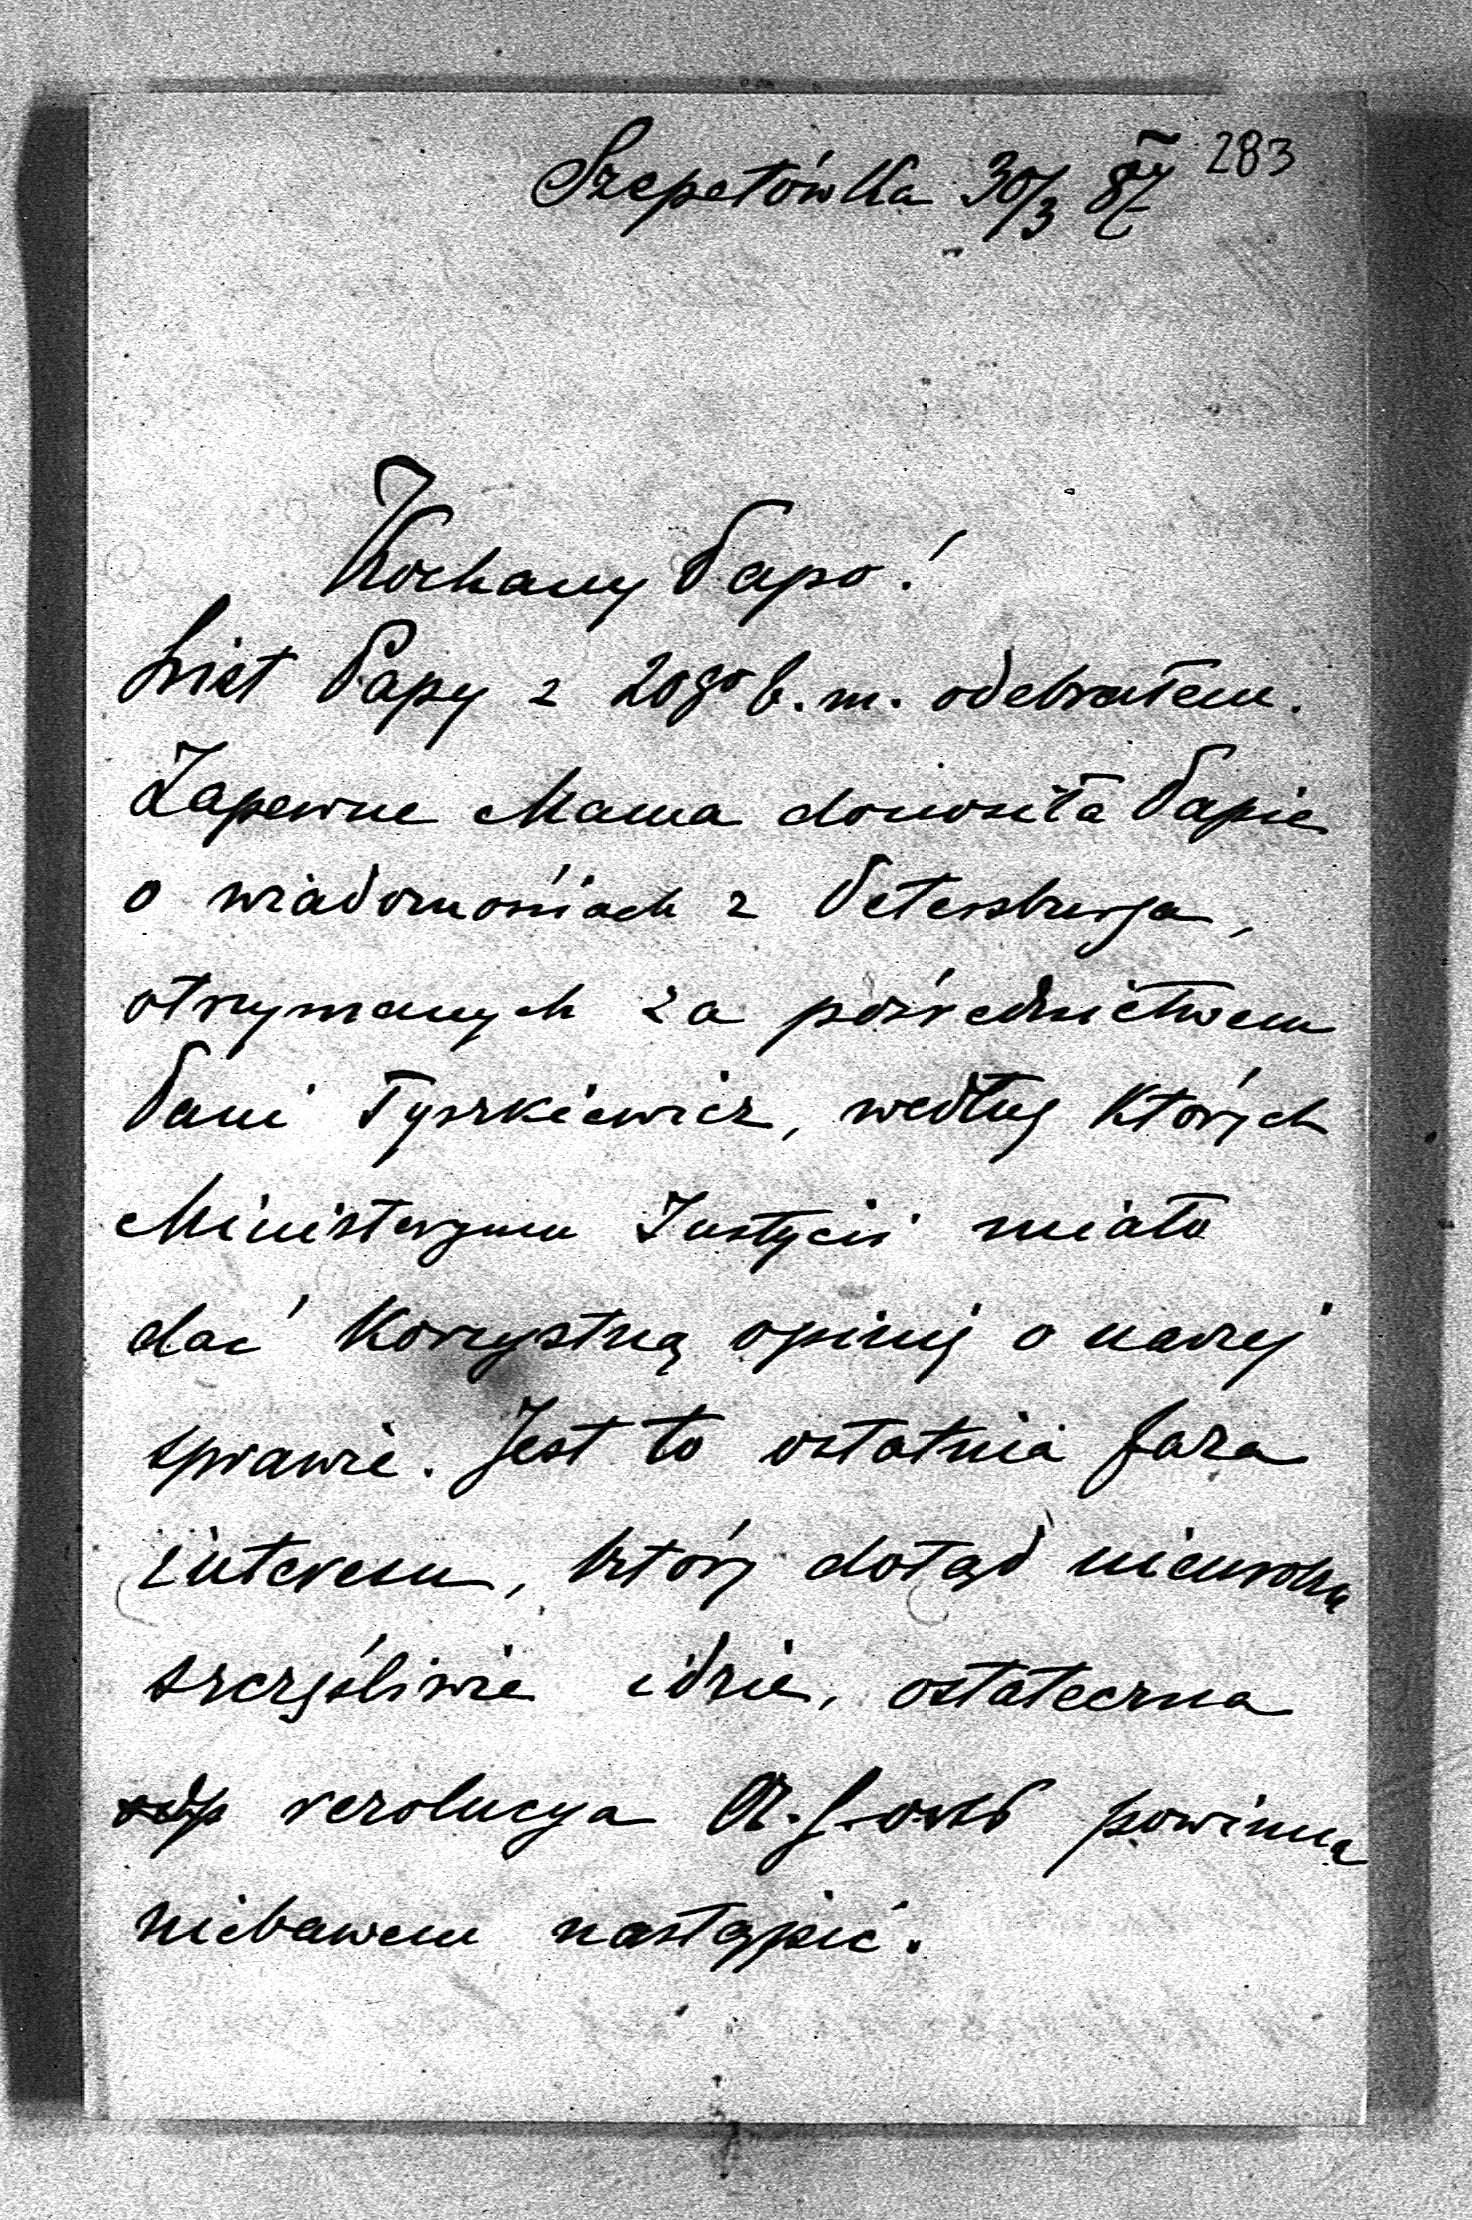 Szepetówka 30/3 87 283
Kochany Papo!
List Papy z 20go b.m. odebrałem.
Zapewne Mama donosiła Papie
o wiadomościach z Petersburga,
otrzymanych za pośrednictwem
Pani Tyszkiewicz, według których
Ministeryum Justycii miało
dać korzystną opinię o naszej
sprawie. Jest to ostatnia faza
interesu, który dotąd
szczęśliwie idzie, ostateczna
rezolucya powinna
niebawem nastąpić.